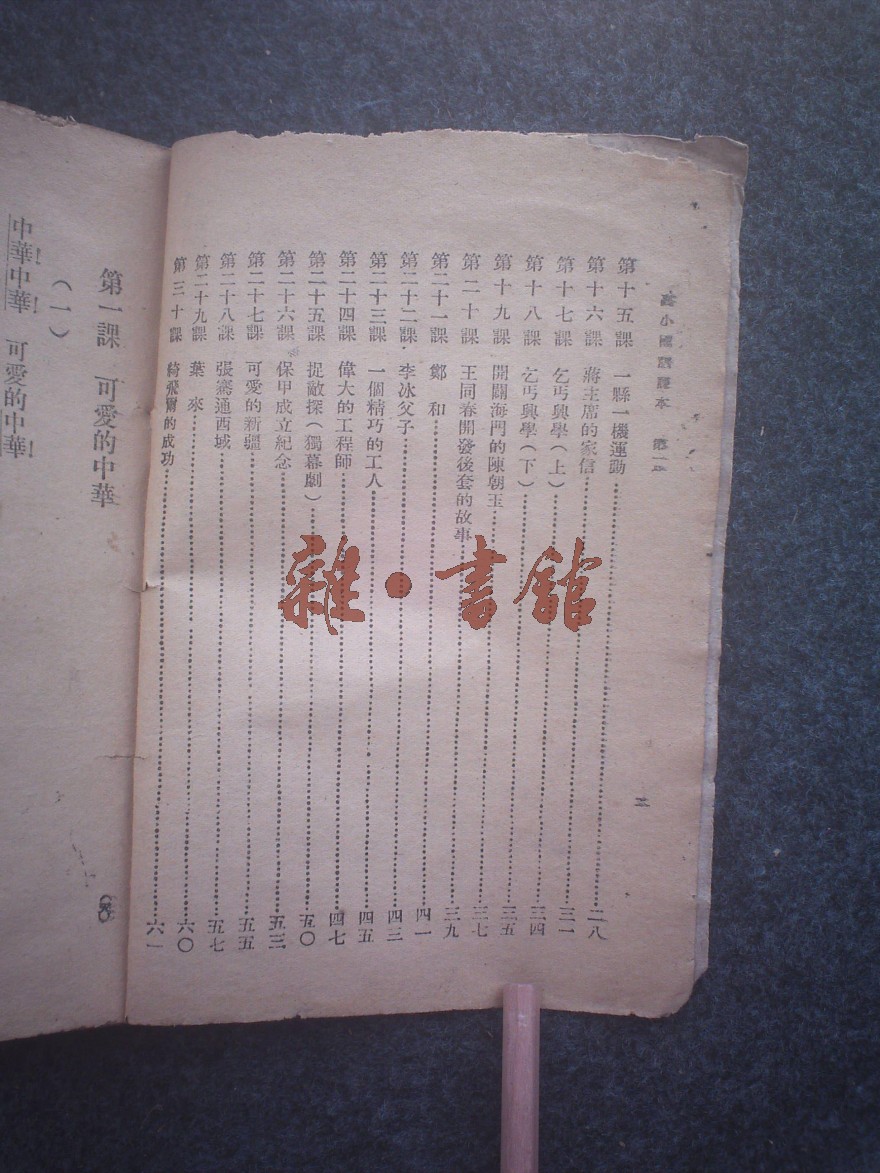 高小國語課本　第一册
第十五課　一縣一機運動……二八
第十六課　蔣主席的家信……三一
第十七課　乞丐興學（上）……三四
第十八課　乞丐興學（下）……三五
第十九課　開闢海門的陳朝玉……三七
第二十課　王同春開發後套的故事……三九
第二十一課　鄭和……四一
第二十二課　李冰父子……四三
第二十三課　一個精巧的工人……四五
第二十四課　偉大的工程師……四七
第二十五課　捉敵探（獨幕劇）……五〇
第二十六課　保甲成立紀念……五三
第二十七課　可愛的新疆……五五
第二十八課　張騫通西域……五七
第二十九課　葉來……六〇
第三十課　綺飛爾的成功……六一
二
第一課　可愛的中華
（一）
中華中華　可愛的中華
雜·書館